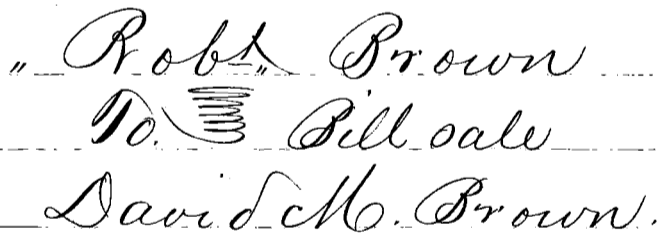 " Robt. Brown
To. Bill sale
David M. Brown.